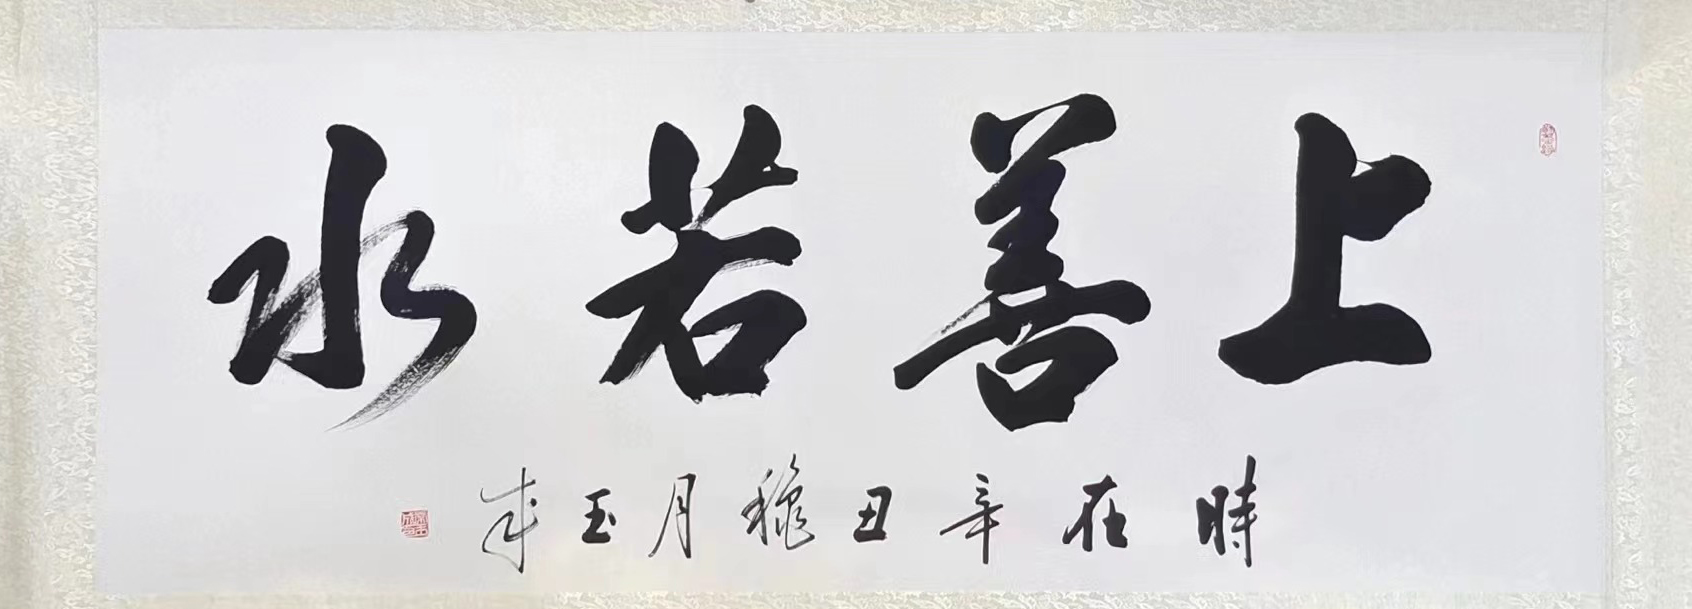 上善若水
時在辛丑穐月玉成